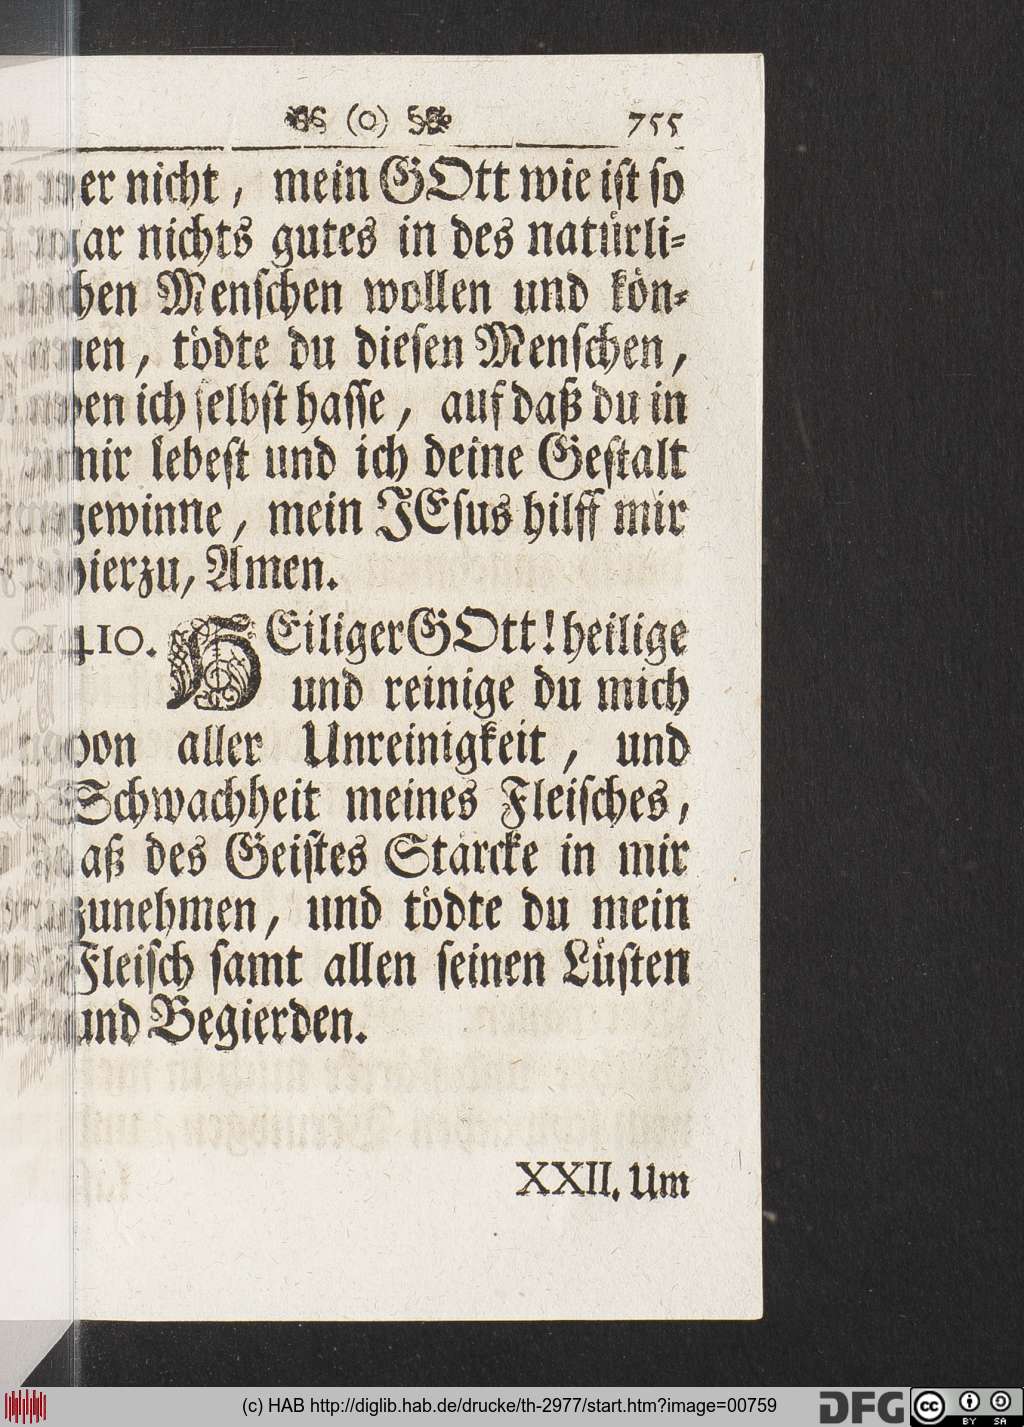 (o) 755
er nicht, mein GOtt wie ist so
gar nichts gutes in des natürli-
chen Menschen wollen und kön-
nen, tödte du diesen Menschen,
den ich selbst hasse, auf daß du in
mir lebest und ich deine Gestalt
gewinne, mein JEsus hilff mir
hierzu, Amen.
410. HEiliger GOtt! heilige
und reinige du mich
von aller Unreinigkeit, und
Schwachheit meines Fleisches,
daß des Geistes Stärcke in mir
zunehmen, und tödte du mein
Fleisch samt allen seinen Lüsten
und Begierden.
XXII. Um
(c) HAB http://diglib.hab.de/drucke/th-2977/start.htm?image=00759
DFG cc BY SA